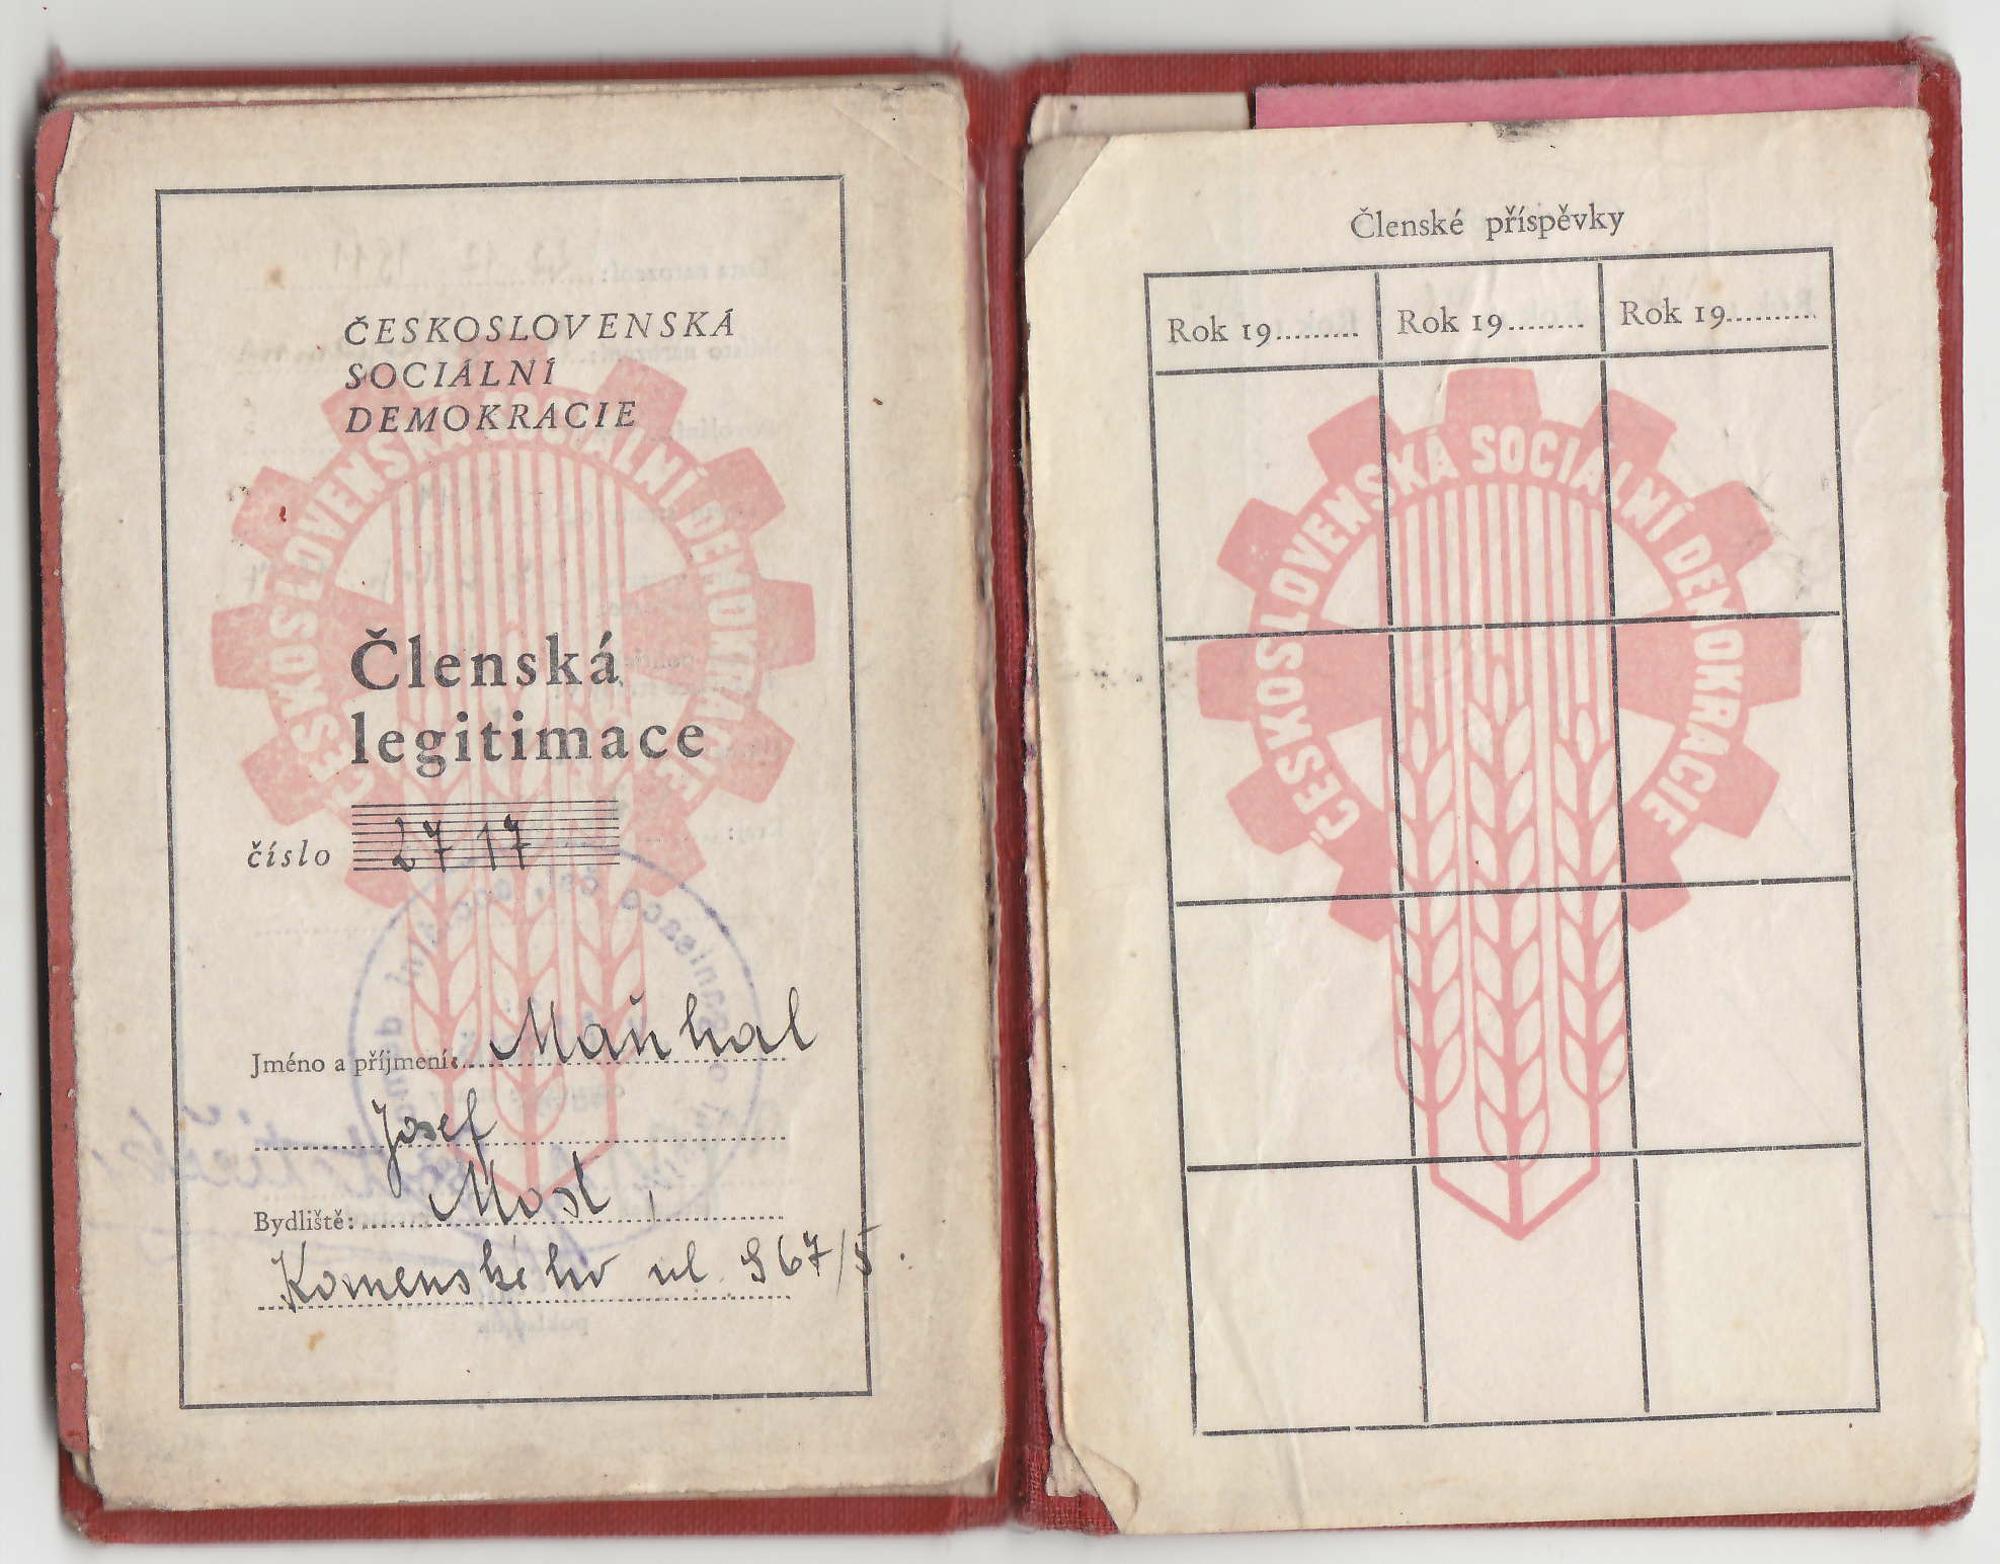 ČESKOSLOVENSKÁ
SOCIÁLNÍ
DEMOKRACIE
ČESKOSLOVENSKÁ SOCIÁLNÍ DEMOKRACIE
Členská
legitimace
číslo 27 17
Jméno a příjmení: Maňhal
Josef
Bydliště: Most,
Komenského ul. 967/5.
Členské příspěvky
Rok 19......... Rok 19........ Rok 19..........
ČESKOSLOVENSKÁ SOCIÁLNÍ DEMOKRACIE